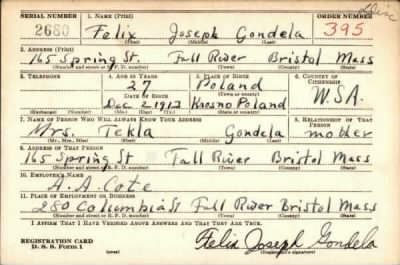 SERIAL NUMBER 1. NAME (Print) ORDER NUMBER
2680 Felix Joseph Gondela 395
(First) (Middle) (Last)
2. ADDRESS (Print)
165 Spring St. Fall River Bristol Mass
(Number and street or R. F. D. number) (Town) (County) (State)
3. TELEPHONE 4. AGE IN YEARS 5. PLACE OF BIRTH 6. COUNTRY OF CITIZENSHIP
27 Poland
DATE OF BIRTH (Town or county)
Dec 2 1913 Krosno Poland W.S.A.
(Exchange) (Number) (Mo.) (Day) (Yr.) (State or country)
7. NAME OF PERSON WHO WILL ALWAYS KNOW YOUR ADDRESS 8. RELATIONSHIP OF THAT PERSON
Mrs. Tekla Gondela mother
(Mr., Mrs., Miss) (First) (Middle) (Last)
9. ADDRESS OF THAT PERSON
165 Spring St Fall River Bristol Mass
(Number and street or R. F. D. number) (Town) (County) (State)
10. EMPLOYER'S NAME
A. A. Cote
11. PLACE OF EMPLOYMENT OR BUSINESS
280 Columbia St Fall River Bristol Mass
(Number and street or R. F. D. number) (Town) (County) (State)
I AFFIRM THAT I HAVE VERIFIED ABOVE ANSWERS AND THAT THEY ARE TRUE.
REGISTRATION CARD
D. S. S. Form 1 Felix Joseph Gondela
(Registrant's signature)